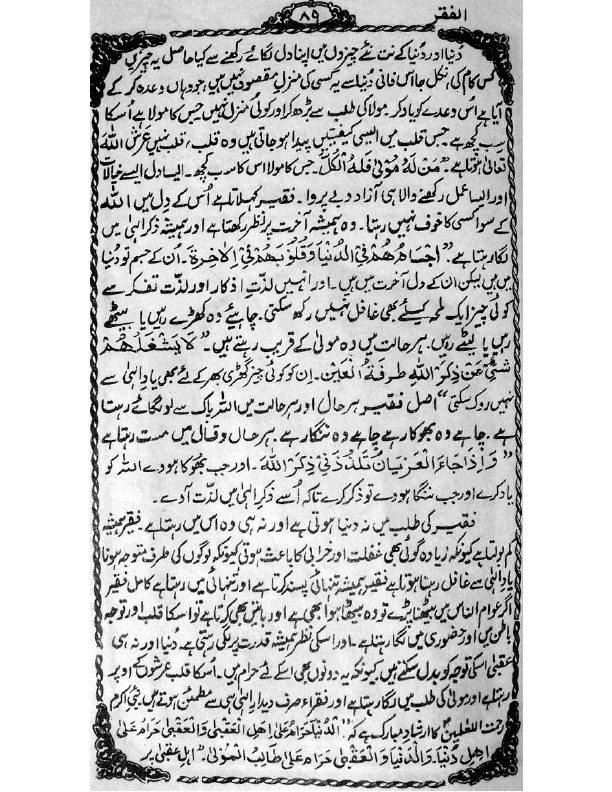 الفقر
۸۹
دُنیا اور دُنیا کے نت نئے چیزوں میں اپنا دل لگائے رکھنے سے کیا حاصل یہ چیزیں
کس کام کی، نکل جا اس فانی دُنیا سے یہ کسی کی منزلِ مقصود نہیں ہیں، جو وہاں وعدہ کر کے
آیا ہے اُس وعدے کو یاد کر۔ مولا کی طلب سے بڑھ کر اور کوئی منزل نہیں جس کا مولا ہے اُسکا
سب کچھ ہے۔ جس قلب میں ایسی کیفیتیں پیدا ہو جاتی ہیں وہ قلب، قلب نہیں عرش اللہ
تعالیٰ ہوتا ہے۔ "مَنْ لَهُ مُوْلیٰ فَلَهُ الْكُلُّ" جس کا مولا اس کا سب کچھ۔ ایسا دل ایسے خیالات
اور ایسا عمل رکھنے والا ہی آزاد و بے پروا۔ فقیر کہلاتا ہے اُس کے دل میں اللہ
کے سوا کسی کا خوف نہیں رہتا۔ وہ ہمیشہ آخرت پر نظر رکھتا ہے اور ہمیشہ ذکر الٰہی میں
لگا رہتا ہے "اجسامُهُمْ فِي الدُّنْيَا وَقُلُوْبُهُمْ فِي الْاٰخِرَةِ۔ اُن کے جسم تو دُنیا
میں ہیں لیکن ان کے دل آخرت میں ہیں۔ اور انہیں لذتِ اذکار اور لذّت تفکر سے
کوئی چیز ایک لمحہ کیلئے بھی غافل نہیں رکھ سکتی۔ چاہیئے وہ کھڑے رہیں یا بیٹھے
رہیں یا لیٹے رہیں۔ ہر حالت میں وہ مولیٰ کے قریب رہتے ہیں۔ "لَا يَشْغَلُهُمْ
شَيْئٌ عَنْ ذِكْرِ اللّٰهِ طَرْفَةَ الْعَيْنِ۔ ان کو کوئی چیز گھڑی بھر کے لئے بھی یادِ الٰہی سے
نہیں روک سکتی" اصل فقیر ہر حال اور ہر حالت میں اللہ پاک سے لو لگائے رہتا
ہے۔ چاہے وہ بھوکا رہے چاہے وہ ننگا رہے۔ ہر حال و قال میں مست رہتا ہے
"وَاِذَا جَاءَ الْعَرْيَانُ تَلَذُّذَ فِيْ ذِكْرِ اللّٰهِ۔ اور جب بھُوکا ہووے اللہ کو
یاد کرے اور جب ننگا ہووے تو ذکر کرے تاکہ اُسے ذکرِ الٰہی میں لذّت آوے۔
فقیر کی طلب میں نہ دنیا ہوتی ہے اور نہ ہی وہ اس میں رہتا ہے۔ فقیر ہمیشہ
کم بولتا ہے کیونکہ زیادہ گوئی بھی غفلت اور خرابی کا باعث ہوتی کیونکہ لوگوں کی طرف متوجہ ہونا
یادِ الٰہی سے غافل رہنا ہوتا ہے فقیر ہمیشہ تنہائی پسند کرتا ہے اور تنہائی میں رہتا ہے کامل فقیر
اگر عوام الناس میں بیٹھنا پڑے تو وہ بیٹھا ہوا بھی ہے اور باتیں بھی کرتا ہے تو اسکا قلب اور توجہ
باطن میں اور حضوری میں لگا رہتا ہے۔ اور اسکی نظر ہمیشہ قدرت پر لگی رہتی ہے۔ دُنیا اور نہ ہی
عقبیٰ اسکی توجہ کو بدل سکتے ہیں کیونکہ یہ دونوں بھی اسکے لئے حرام ہیں۔ اُسکا قلب عرشوں کے اوپر
رہتا ہے اور مولیٰ کی طلب میں لگا رہتا ہے اور فقراء صرف دیدارِ الٰہی ہی سے مطمئن ہوتے ہیں۔ نبی اکرم
رحمت اللعلمین کا ارشاد مبارک ہے کہ "اَلدُّنْيَا حَرَامٌ عَلیٰ اَهْلِ الْعُقْبیٰ وَالْعُقْبیٰ حَرَامٌ عَلیٰ
اَهْلِ دُنْيَا۔ وَالدُّنْيَا وَ الْعُقْبیٰ حَرَامٌ عَلیٰ طَالِبِ الْمَوْلیٰ۔" اہلِ عقبیٰ پر